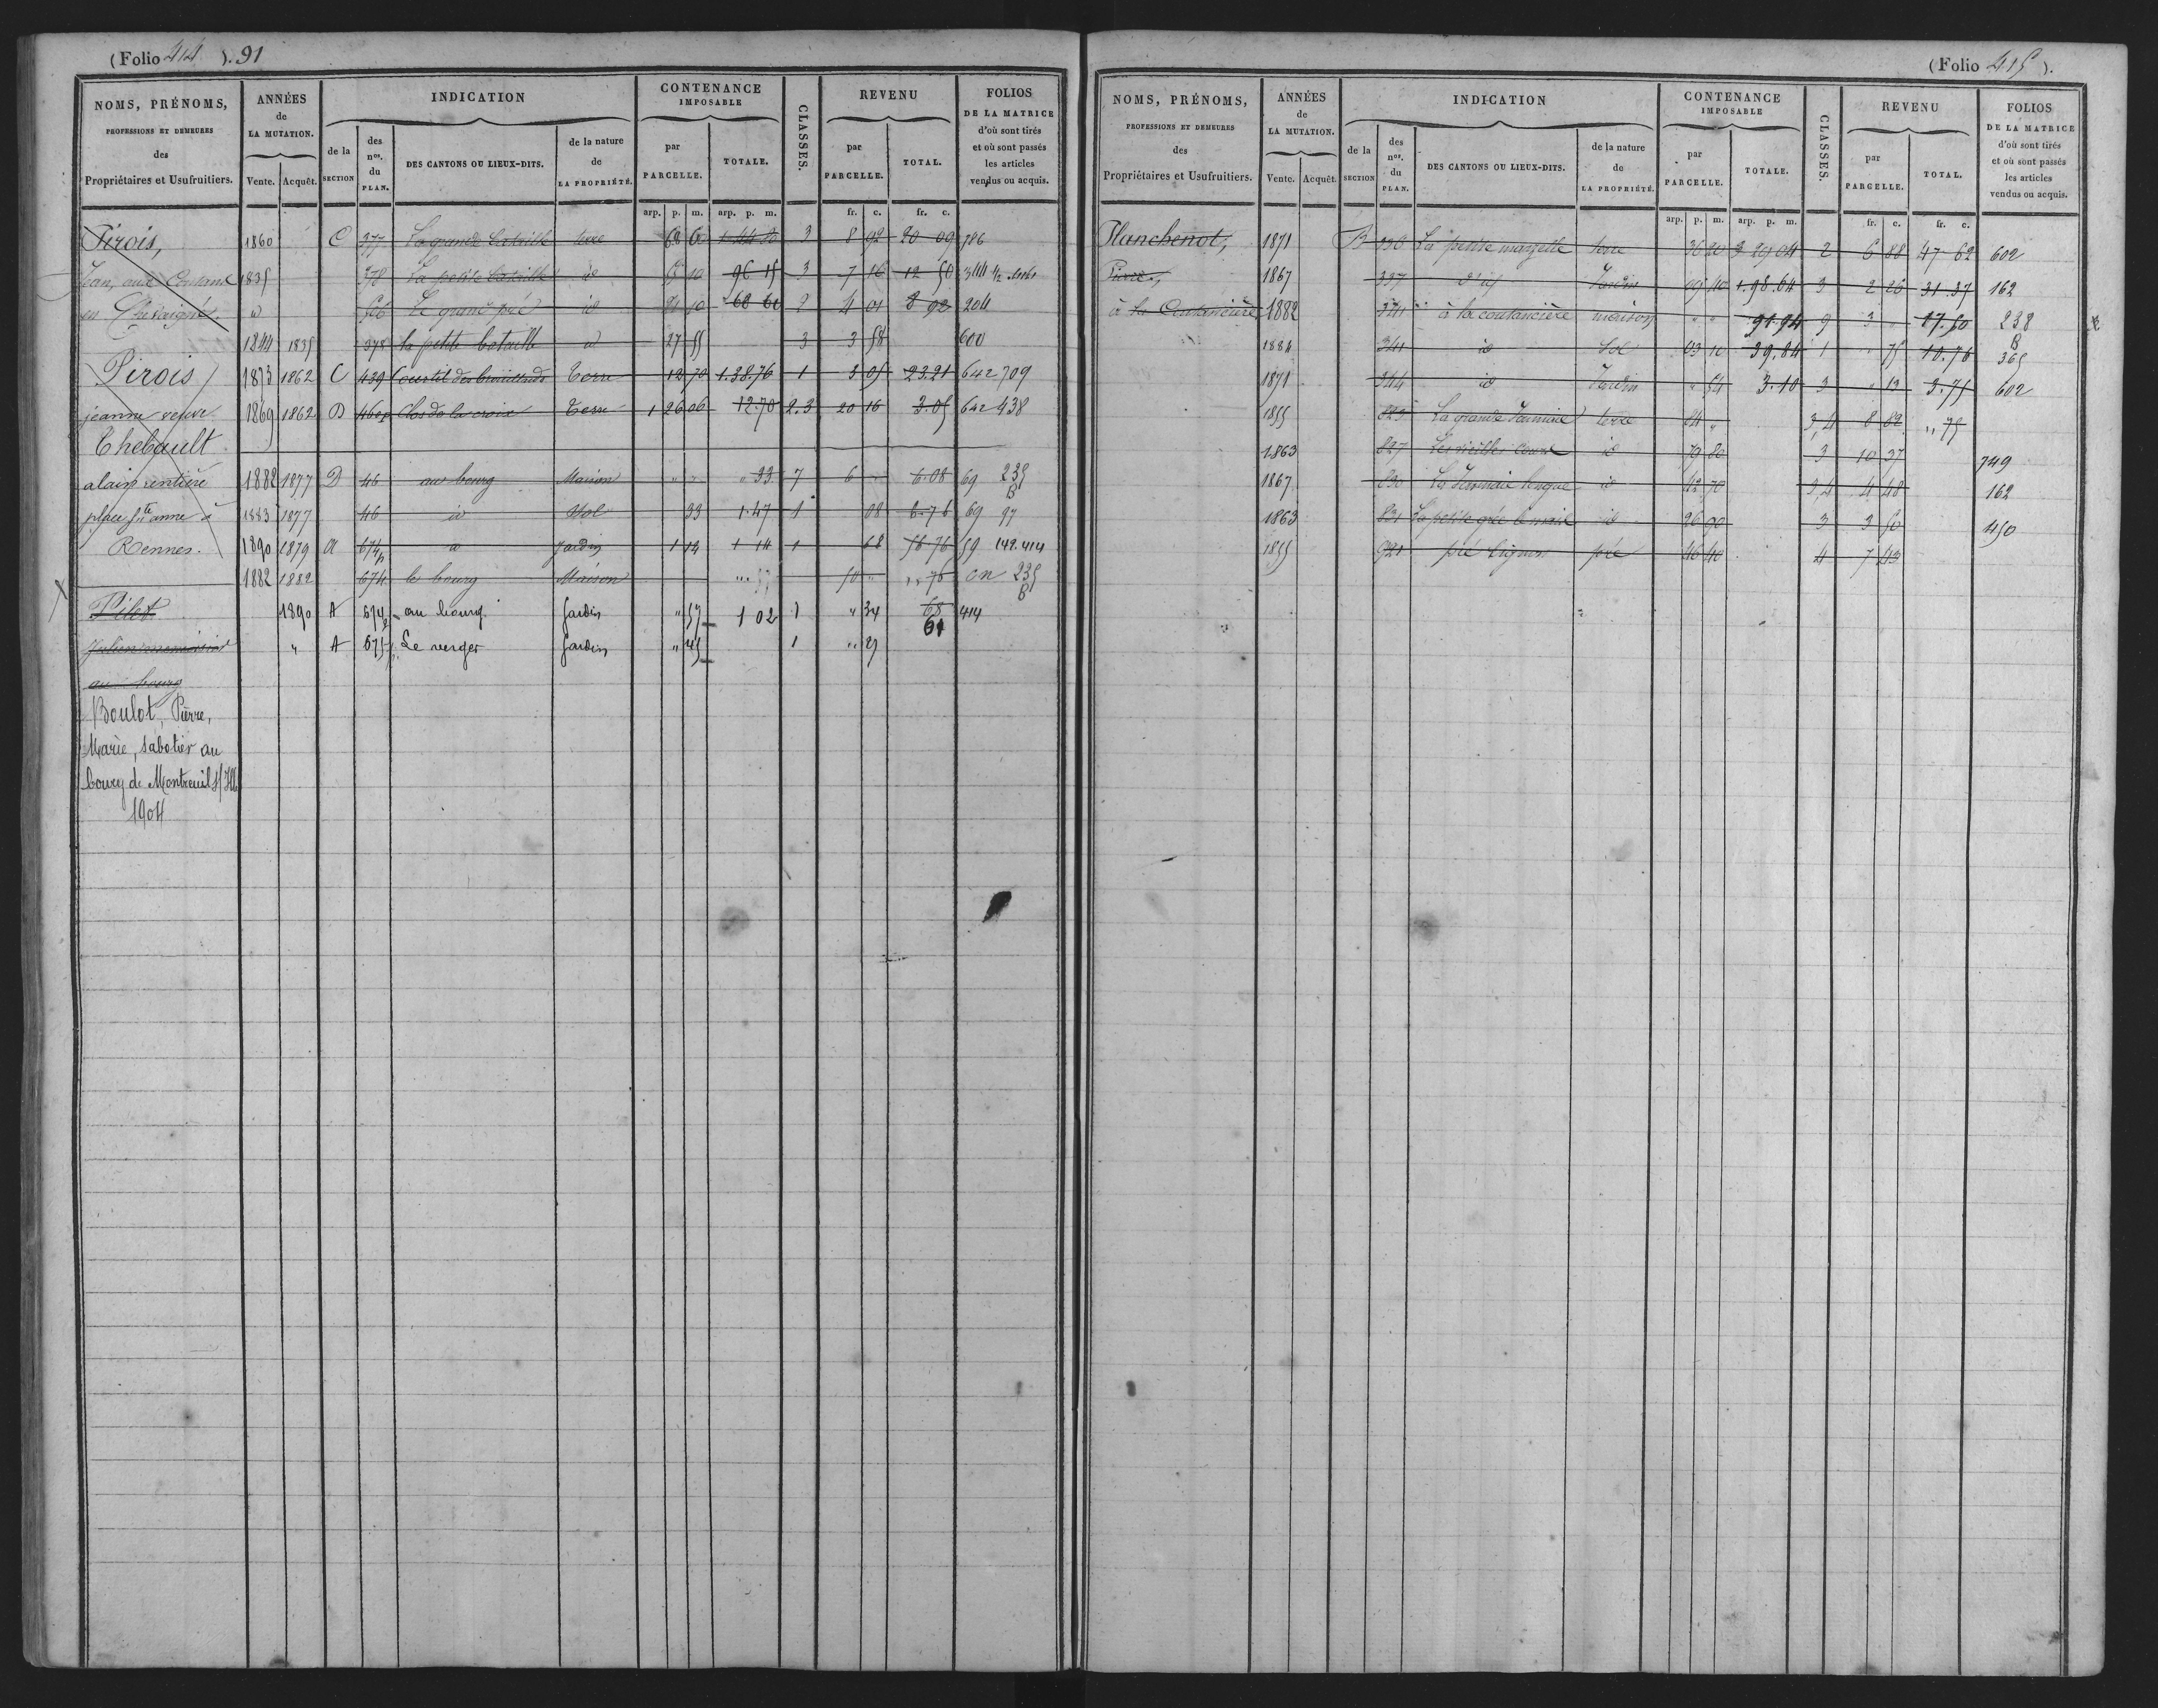 (Folio 414 ). 91
NOMS, PRÉNOMS,
PROFESSIONS ET DEMEURES
des
Propriétaires et Usufruitiers.
ANNÉES
de
LA MUTATION.
Vente. Acquêt.
INDICATION
de la
SECTION
des
nos.
du
PLAN.
DES CANTONS OU LIEUX-DITS.
de la nature
de
LA PROPRIÉTÉ.
CONTENANCE
IMPOSABLE
par
PARCELLE.
TOTALE.
CLASSES.
REVENU
par
PARCELLE.
TOTAL.
FOLIOS
DE LA MATRICE
d'où sont tirés
et où sont passés
les articles
vendus ou acquis.
arp. p. m. arp. p. m. fr. c. fr. c.
Pirois, 1860 C 377 La grande bataille terre 68 60 3 8 92 20 09 786
Jean, 1835 378 La petite bataille id 96 15 3 7 16 12 58 344
en Chevaigné id 506 Le grand pré id 10 68 60 2 4 01 8 92 204
1844 1835 378 la petite bataille id 27 55 3 3 58 600
Pirois 1873 1862 C 439 Courtil des Terre 12 70 1.38.76 1 3 05 23.21 642 709
jeanne veuve 1869 1862 D Clos de la croix Terre 1 26 06 12.70 2.3 20 16 3.05 642 438
Thebault
alain rentière 1882 1877 D 46 au bourg Maison " " " 33 7 6 " 6.08 69 235 B
place Ste anne à 1883 1877 46 id Sol 33 1.47 1 08 6.76 69 97
Rennes. 1890 1879 A 674p id Jardin 1 14 1 14 1 68 56 76 59 149.414
1882 1882 674 le bourg Maison 50 " " 76 on 235 B
Pilet 1890 A 674p au bourg Jardin " 57 1 02 1 " 34 68 414
61
Julien menuisier " A 675p Le verger Jardin " 45 1 " 27
au bourg
Boulot, Pierre,
Marie, sabotier au
bourg de Montreuil s/Ille
1904
(Folio 415 ).
NOMS, PRÉNOMS,
PROFESSIONS ET DEMEURES
des
Propriétaires et Usufruitiers.
ANNÉES
de
LA MUTATION.
Vente. Acquêt.
INDICATION
de la
SECTION
des
nos.
du
PLAN.
DES CANTONS OU LIEUX-DITS.
de la nature
de
LA PROPRIÉTÉ.
CONTENANCE
IMPOSABLE
par
PARCELLE.
TOTALE.
CLASSES.
REVENU
par
PARCELLE.
TOTAL.
FOLIOS
DE LA MATRICE
d'où sont tirés
et où sont passés
les articles
vendus ou acquis.
arp. p. m. arp. p. m. fr. c. fr. c.
Planchenot, 1871 B 336 La petite terre 36 20 3 29 04 2 6 88 47 62 602
Pierre, 1867 337 Jardin 09 40 1.98.64 3 2 26 31.37 162
à la Coutancière 1882 341 à la coutancière maison " " 91.94 9 3 " 17.50 238 B
1884 341 id Sol 03 10 39.84 1 " 75 10.76 365
1871 344 id Jardin " 54 3.10 3 " 13 3.75 602
1855 823 La grande terre 84 " 3,4 8 82 " 75
1863 827 Les vieilles cours id 79 80 3 10 37 749
1867 830 La longue id 42 70 3,4 4 48 162
1863 831 La petite id 26 90 3 3 50 450
1855 921 pré pré 46 40 4 7 43